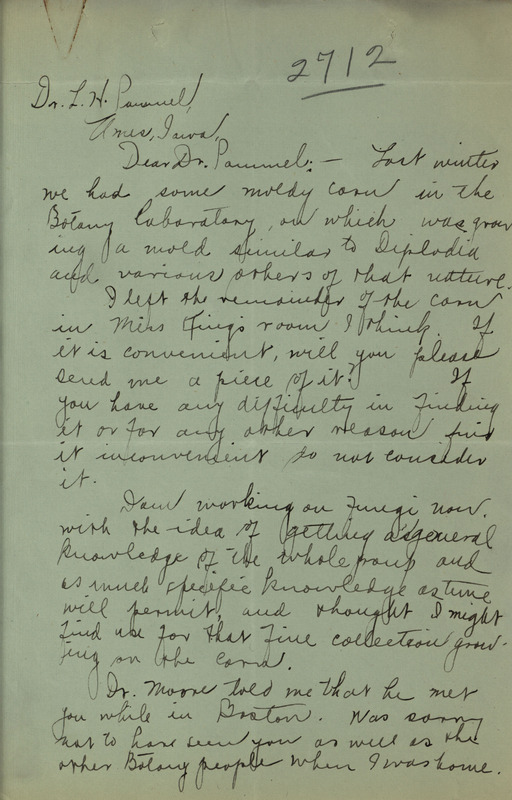 2712
Dr. L. H. Pammel,
Ames, Iowa,
Dear Dr. Pammel: – Last winter
we had some moldy corn in the
Botany laboratory, on which was grow
ing a mold similar to Diplodia
and various others of that nature.
I left the remainder of the corn
in Miss King's room I think. If
it is convenient, will you please
send me a piece of it? If
you have any difficulty in finding
it or for any other reason find
it inconvenient do not consider
it.
I am working on Fungi now.
with the idea of getting a general
knowledge of the whole group and
as much specific knowledge as time
will permit, and thought I might
find use for that fine collection grow-
ing on the corn.
Dr. Moore told me that he met
you while in Boston. Was sorry
not to have seen you as well as the
other Botany people when I was home.